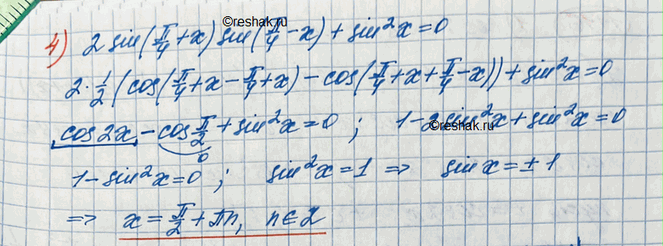 ©reshak.ru
4) 2 sin(π/4+x) sin(π/4-x) + sin²x = 0
2·1/2 (cos(π/4+x-π/4+x) - cos(π/4+x+π/4-x)) + sin²x = 0
cos2x - cos π/2 + sin²x = 0 ; 1-2sin²x+sin²x = 0
©reshak.ru
0
1-sin²x=0 ; sin²x=1 => sinx=±1
=> x = π/2 + πn, n∈Z